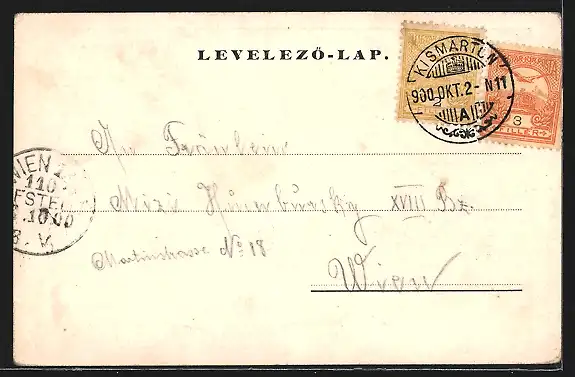 LEVELEZŐ-LAP.
KISMARTON
900 OKT. 2 - N 11
A
2
3
FILLÉR
An Fräulein
Mizi XVIII Bz.
Martinstrasse No 18
Wien
WIEN
110
BESTELLT
.10.00
8. V.